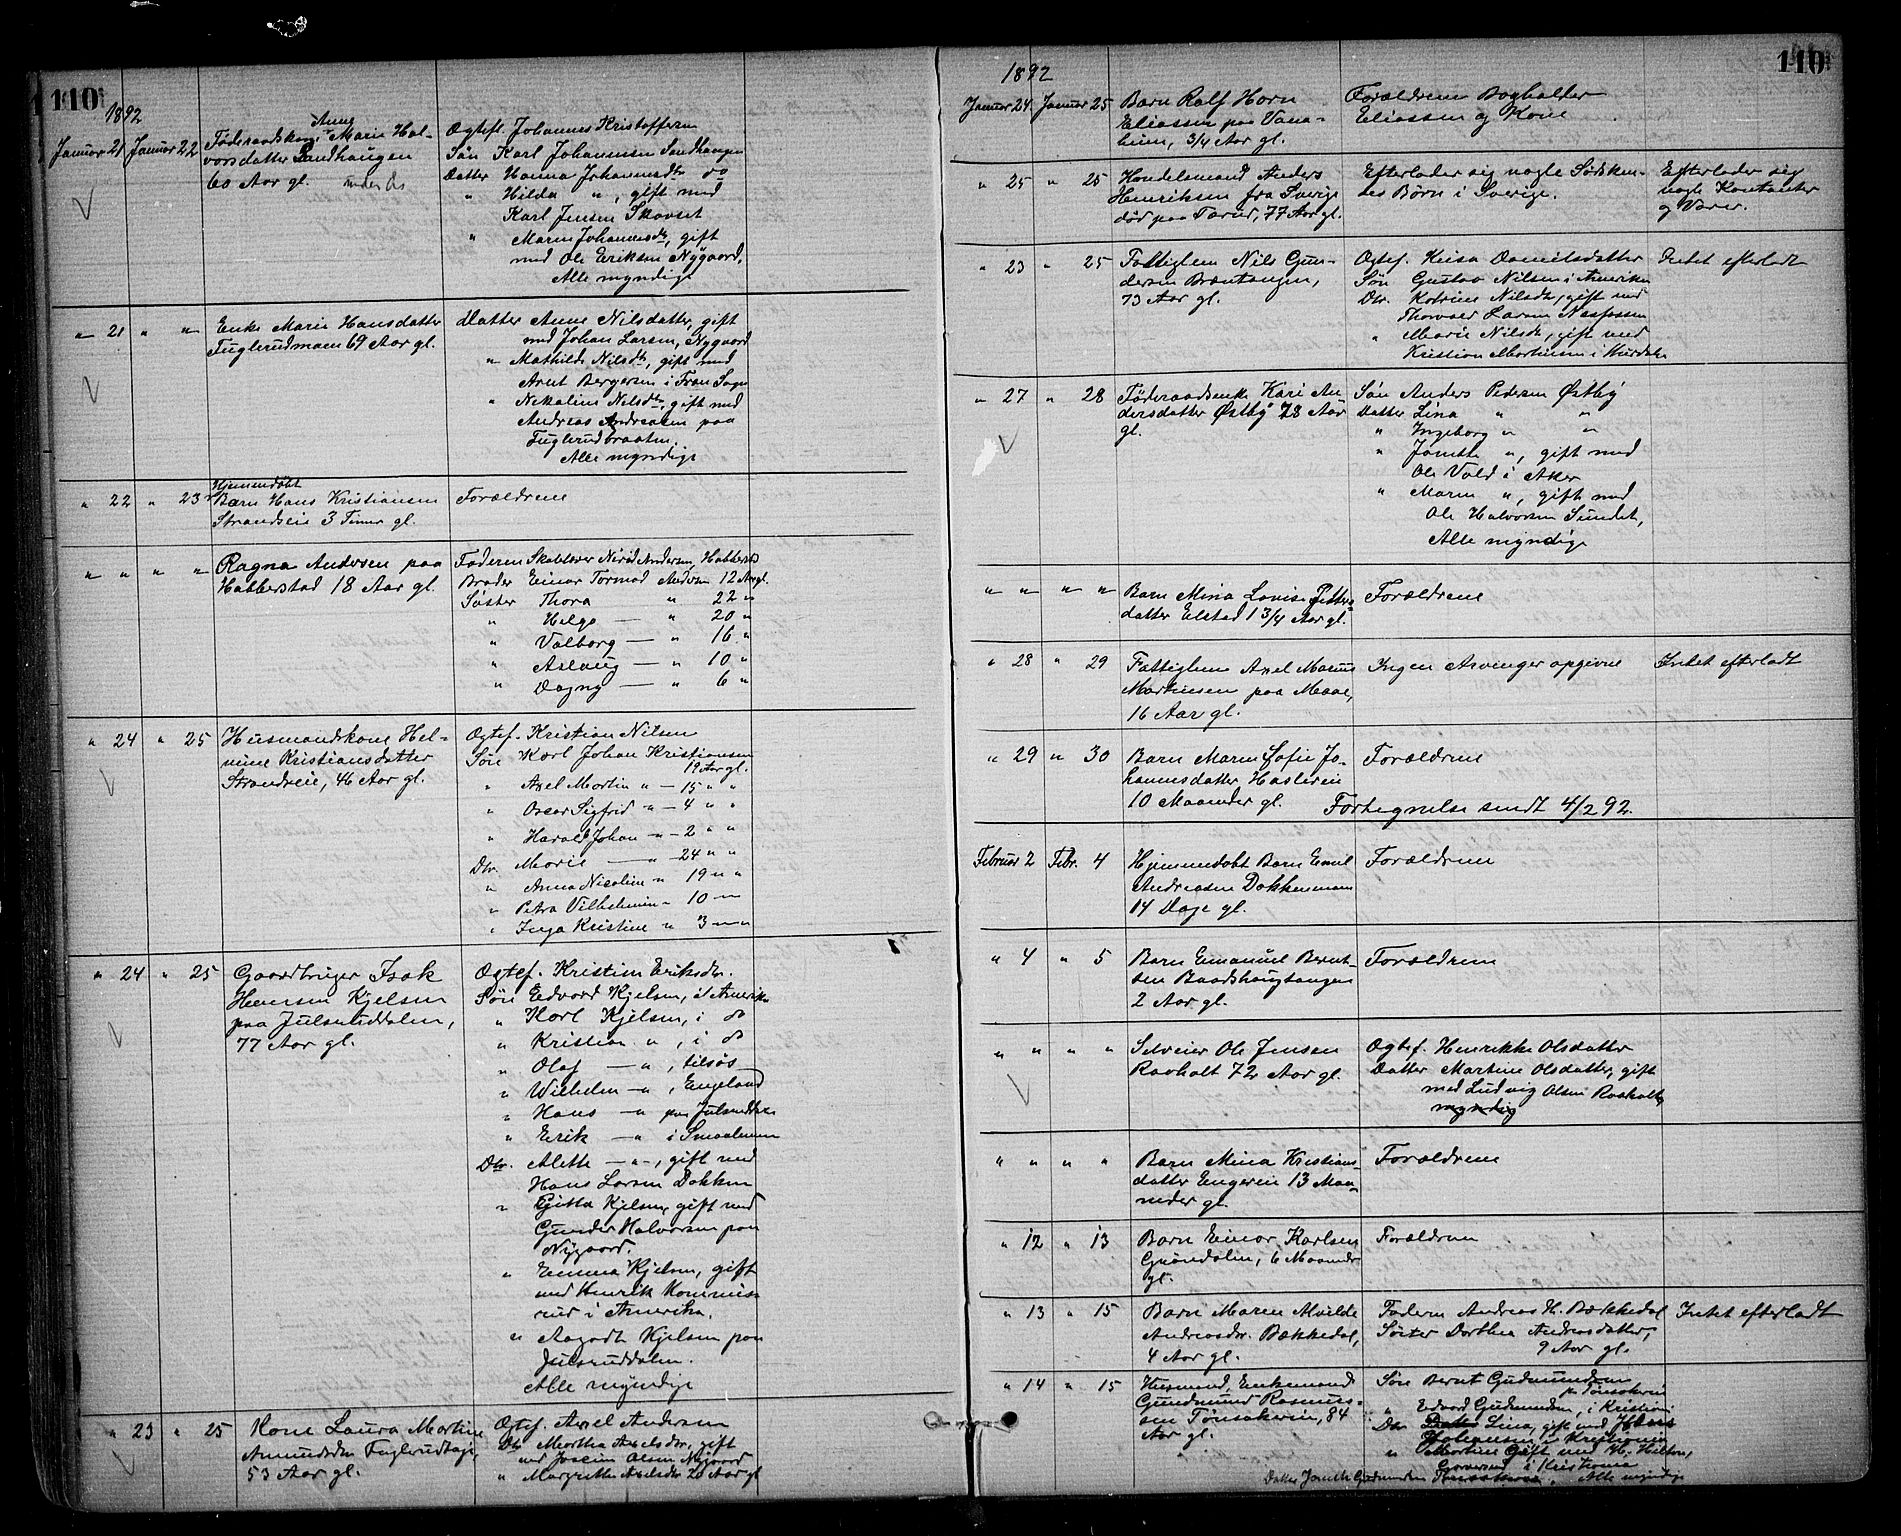 110
1892
Januar 21 Januar 22 Føderaadskone Anne Marie Hal-
vorsdatter Sandhaugen
60 Aar gl.
Ogtef. Johannes Kristoffersen
Søn Karl Johannesen Sandhaugen
Datter Hanna Johannesdtr do
" Hilda ", gift med
Karl Jensen Skovset
" Maren Johannesdtr, gift
med Ole Eriksen Nygaard.
Alle myndige
" 21 " " Enke Marie Hansdatter
Fuglerudmoen 69 Aar gl.
Datter Anne Nilsdatter, gift
med Johan Larsen, Nygaard
" Mathilde Nilsdtr, gift med
Arnt Bergersen i Fron Sogn
" Nikoline Nilsdtr, gift med
Andreas Andreasen paa
Fuglerudbraaten.
Alle myndige
" 22 " 23 Hjemmedøbt
Barn Hans Kristiansen
Strandeie 3 Timer gl.
Forældrene
" " " " Ragna Andersen paa
Habberstad 18 Aar gl.
Faderen Skolelærer Andersen, Habberstad
Broder Einar Tormod Andersen 12 Aar gl.
Søster Thora " 22 "
" Helga — " 20 "
" Valborg — " 16 "
" Aslaug — " 10 "
" Dagny — " 6 "
" 24 " 25 Husmandskone Hel-
mine Kristiansdatter
Strandeie, 46 Aar gl.
Ogtef. Kristian Nilsen
Søn Karl Johan Kristiansen
19 Aar gl.
" Axel Martin " — 15 " "
" Oscar Sigfrid " — 4 " "
" Harald Johan — " — 2 " "
Dtr. Marie — " — 24 " "
" Anna Nicoline " 19 " "
" Petra Vilhelmine " 10 —
" Inga Kristine " 3 — "
" 24 " 25 Gaardbruger Isak
Hensen Kjelsen
paa Julsruddalen,
77 Aar gl.
Ogtef. Kristine Eriksdtr.
Søn Edvard Kjelsen, i Amerika
" Karl Kjelsen, i do
" Kristian ", i do
" Olaf — ", tilsøs
" Wilhelm — ", England
" Hans — " paa Julsruddalen
" Erik — " i Smaalenene
Dtr. Alette — " —, gift med
Hans Larsen Dokken
" Gitta Kjelsen, gift med
Gunder Halvorsen paa
Nygaard.
" Emma Kjelsen, gift
med Henrik Kommis-
rud i Amerika.
" Aagodt Kjelsen paa
Julsruddalen.
Alle myndige
" 23 " 25 Kone Laura Martine
Amundsdtr Fuglerudhagen
53 Aar gl.
Ogtef. Axel Andersen
Dtr Martha Axelsdtr, gift
med Joacim Olsen Nygaard
" Margrethe Axelsdtr 20 Aar gl
110
1892
Januar 24 Januar 25 Barn Ralf Horn
Eliassen paa Vana-
heim, 3/4 Aar gl.
Forældrene Bogholder
Eliassen og Kone
" 25 " 25 Handelsmand Anders
Henriksen fra Sverige
død paa Tærud, 77 Aar gl.
Efterlader sig nogle Sødsken-
des Børn i Sverige.
Efterlader sig
nogle Kontanter
og Varer.
" 23 " 25 Fattiglem Nils Gun-
dersen Bræntangen,
73 Aar gl.
Ogtef. Kiisa Danielsdatter
Søn Gustav Nilsen i Amerika
Dtr. Katrine Nilsdtr, gift med
Thorvald Larsen Næsfossen
" Marie Nilsdtr, gift med
Kristian Mortinsen i Hurdalen
Intet efterladt
" 27 " 28 Føderaadsenke Kari An-
dersdatter Østby 78 Aar
gl.
Søn Anders Pedersen Østby
Datter Lina " "
" Ingeborg " "
" Janette ", gift med
Ole Vold i Aker
" Maren ", gift med
Ole Halvorsen Sundet,
Alle myndige
" " " " Barn Mina Lovise Petters-
datter Elstad 1 3/4 Aar gl.
Forældrene
" 28 " 29 Fattiglem Axel Marius
Martinsen paa Moae,
16 Aar gl.
Ingen Arvinger opgivne
Intet efterladt
" 29 " 30 Barn Maren Sofie Jo-
hannesdatter Haslerein
10 Maaneder gl.
Forældrene
Fortegnelse sendt 4/2 92.
Februar 2 Febr. 4 Hjemmedøbt Barn Emil
Andreasen Dokkenmoen
14 Dage gl.
Forældrene
" 4 " 5 Barn Emanuel Bernt-
sen Baadshaugtangen
2 Aar gl.
Forældrene
" " " " Selveier Ole Jensen
Raaholt 72 Aar gl.
Ogtef. Henrikke Olsdatter
Datter Martine Olsdatter, gift
med Ludvig Olsen Raaholt,
myndig
" " " " Barn Mina Kristians-
datter Engereie 13 Maa-
neder gl.
Forældrene
" 12 " 13 Barn Einar Karlsen
Grøndalen, 6 Maaneder
gl.
Forældrene
" 13 " 15 Barn Maren Alvilde
Andreasdtr. Bækkedal,
4 Aar gl.
Faderen Andreas H. Bækkedal
Søster Dorthea Andreasdatter,
9 Aar gl.
Intet efterladt
" 14 " 15 Husmand, Enkemand
Gundmund Rasmus-
sen Tønsakereie, 84
Aar gl.
Søn Bernt Gudmundsen
pr Tønsakereie
" Edvard Gudmundsen, i Kristiania
Dtr Lina, gift med Hans
Johansen i Kristiania
" Martine Gift med H. Hilton,
i Kristiania
Datter Janette Gudmundsen Tønsakereie. Alle myndige